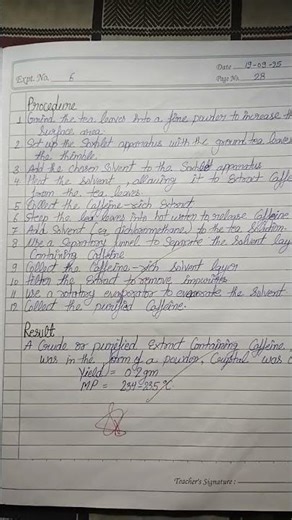 Date 19-09-25
Expt. No. 6
Page No. 28
Procedure
1 Grind the tea leaves into a fine powder to increase the
surface area.
2 Set up the Soxhlet apparatus with the ground tea leaves
the thimble.
3 Add the chosen solvent to the Soxhlet apparatus
4 Heat the solvent, allowing it to Extract Caffe
from the tea leaves.
5 Collect the Caffeine-rich Extract
6 Steep the leaves into hot water to release Caffeine
7 Add Solvent (eg, dichloromethane) to the tea Solution.
8 Use a Separatory funnel to Separate the Solvent lay
Containing Caffeine
9 Collect the Caffeine-rich Solvent layer
10 the Extract to remove impurities
11 Use a rotatory evaporator to evaporate the Solvent
12 Collect the purified Caffeine.
Result
A Crude or purified Extract Containing Caffeine.
was in the form of a powder. Crystal was
Yield = 0.2gm
MP = 234-235°C
Teacher's Signature :